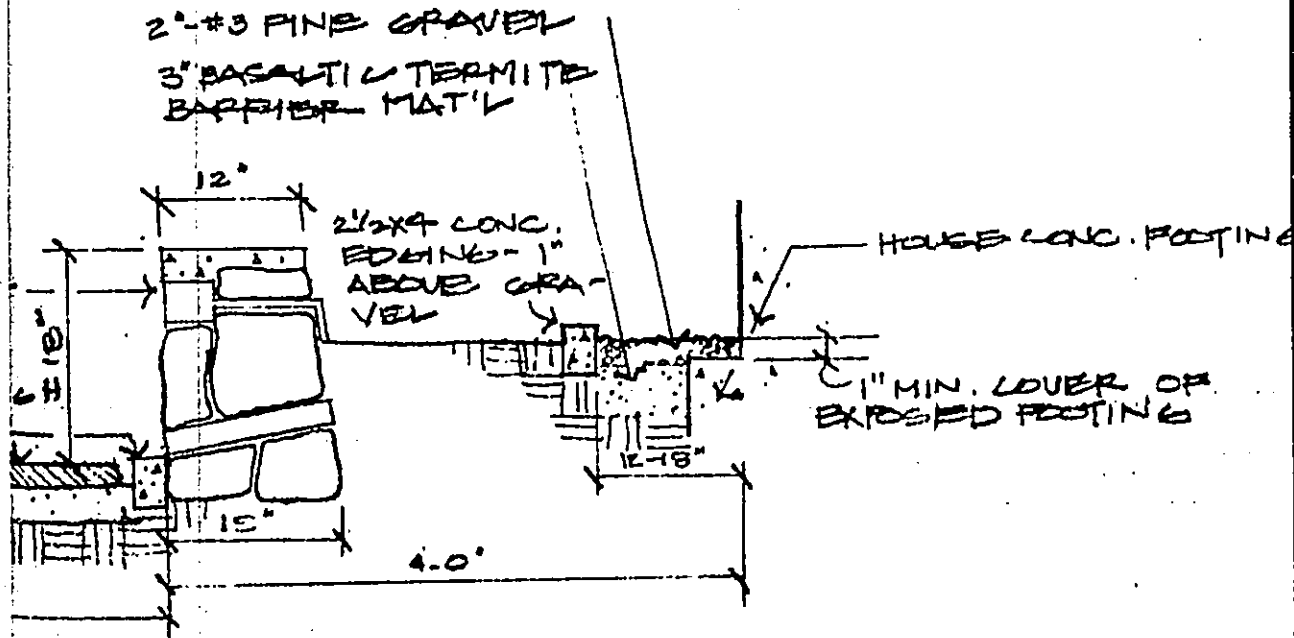 2"-#3 FINE GRAVEL
3" BASALTIC TERMITE
BARRIER MAT'L
12"
2 1/2X4 CONC.
EDGING - 1"
ABOVE GRA-
VEL
HOUSE CONC. FOOTING
18"
1" MIN. COVER OF
EXPOSED FOOTING
12-18"
15"
4-0"